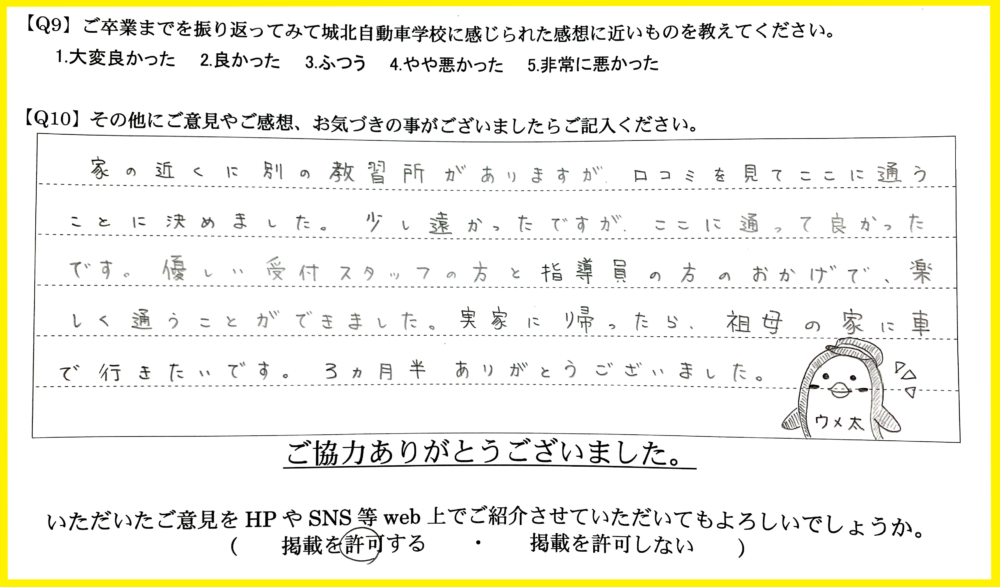 【Q9】ご卒業までを振り返ってみて城北自動車学校に感じられた感想に近いものを教えてください。
1.大変良かった 2.良かった 3.ふつう 4.やや悪かった 5.非常に悪かった
【Q10】その他にご意見やご感想、お気づきの事がございましたらご記入ください。
家の近くに別の教習所がありますが、口コミを見てここに通う
ことに決めました。少し遠かったですが、ここに通って良かった
です。優しい受付スタッフの方と指導員の方のおかげで、楽
しく通うことができました。実家に帰ったら、祖母の家に車
で行きたいです。3ヵ月半ありがとうございました。
ウメ太
ご協力ありがとうございました。
いただいたご意見をHPやSNS等web上でご紹介させていただいてもよろしいでしょうか。
( 掲載を許可する ・ 掲載を許可しない )